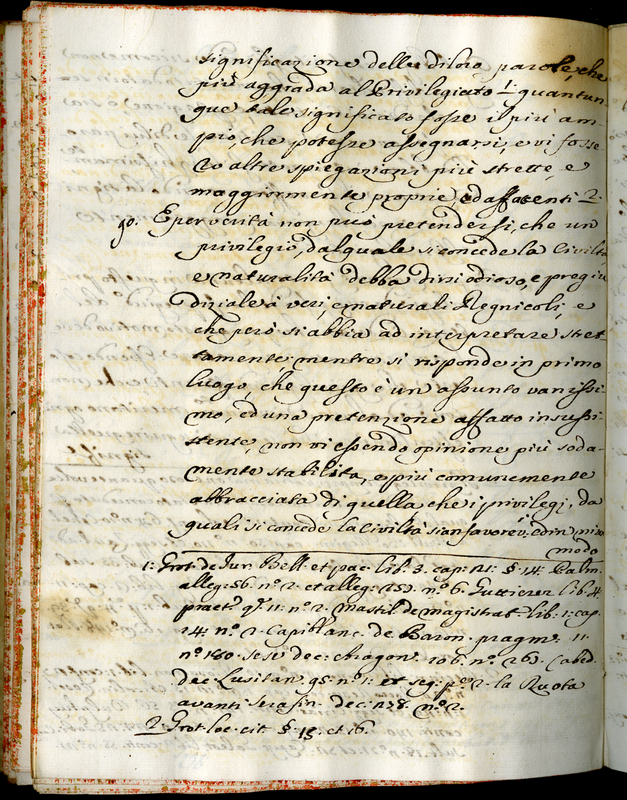 significazione delle di loro parole, che
più aggrada al Privilegiato 1. quantun
que tale significato fosse il più am
pio, che potesse assegnarsi, e vi fosse
ro altre spiegazioni più strette e
maggiormente proprie, ed affacenti 2.
90. E per verità non può pretendersi, che un
privilegio, dal quale si concede la Civiltà
e naturalità debba dirsi odioso, e pregiu
diziale à veri, e naturali Regnicoli, e
che però si abbia ad interpretare stret
tamente: mentre si risponde in primo
luogo, che questo è un assunto vanissi
mo, ed una pretenzione affatto insussi
stente, non vi essendo opinione più soda-
mente stabilita, e più comunemente
abbracciata di quella che i privilegj, da
quali si concede la Civiltà sian favorevi, ed in
modo
1: Grot. de Jur. Bell. et pac. lib. 3. cap. 21. §. 14. Palm.
alleg. 56. nº. 2. et alleg. 252. nº. 6. Guttierez lib. 4.
pract. q. 11. nº. 2. Mastril. de magistrat. lib. 1. cap.
24. nº. 2. Capiblanc. de Baron. pragm. 11.
nº. 180. Sese dec. Aragon. 106. nº. 263. Cabed.
dec. Lusitan. 95. nº. 1. et seg. p. 2. la Ruota
avanti Serafin. dec. 1238. nº. 2.
2. Grot. loc. cit. §. 15. et 16.